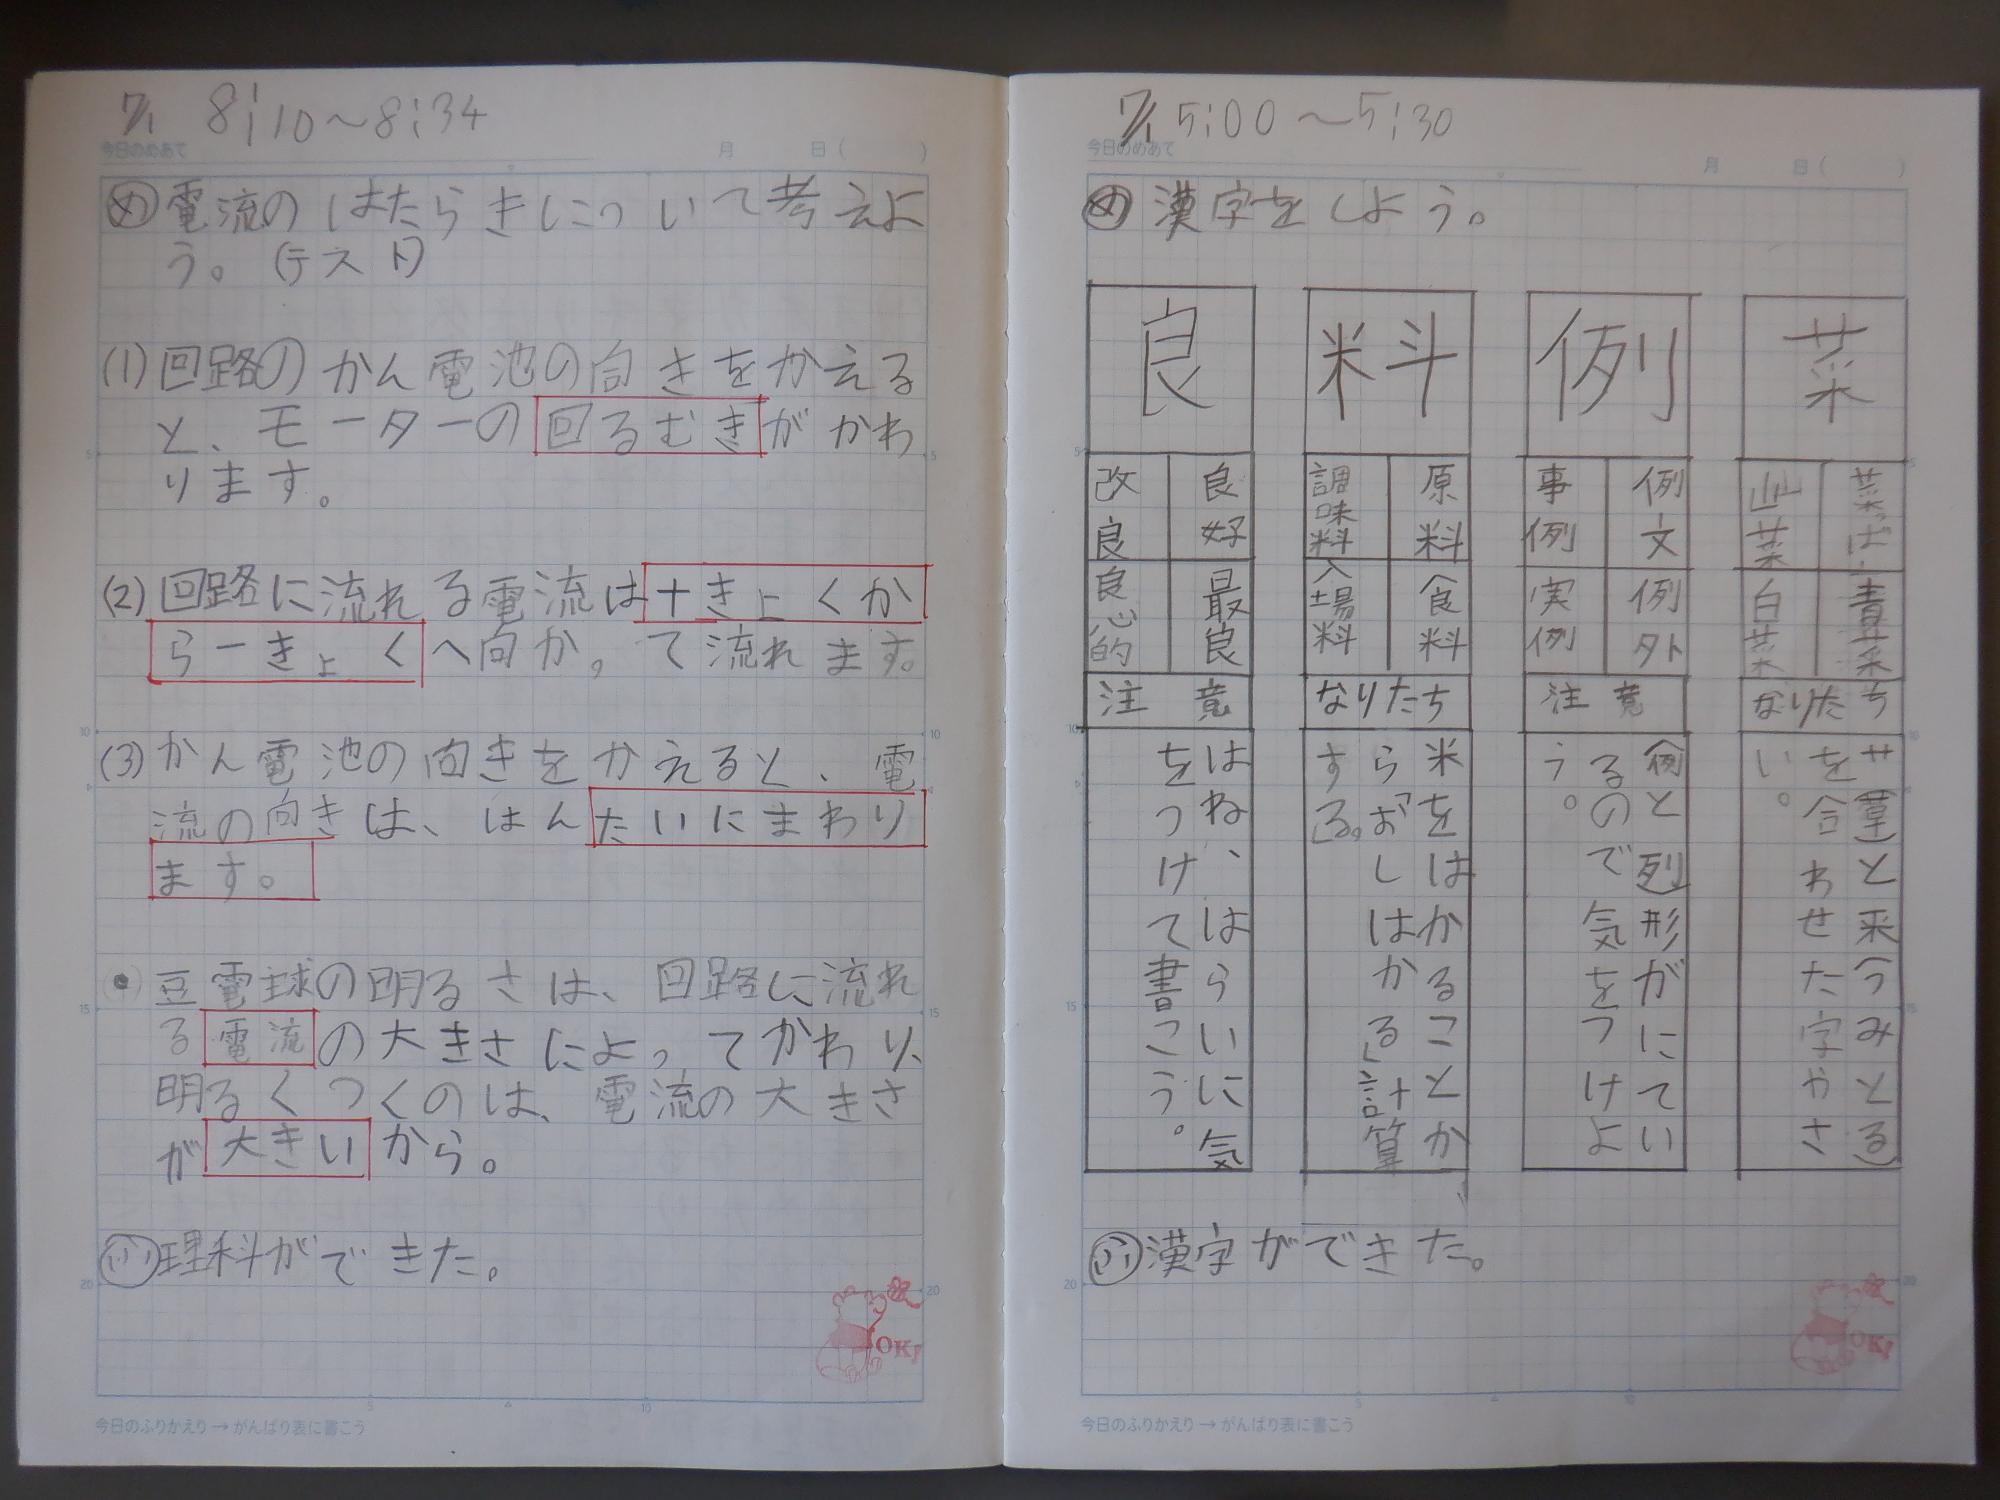 7/1 8:10～8:34
今日のめあて 月 日( )
め 電流のはたらきについて考えよ
う。(テスト)
(1) 回路のかん電池の向きをかえる
と、モーターの回るむきがかわ
ります。
(2) 回路に流れる電流は+きょくか
らーきょくへ向かって流れます。
(3) かん電池の向きをかえると、電
流の向きは、はんたいにまわり
ます。
豆電球の明るさは、回路に流れ
る電流の大きさによってかわり、
明るくつくのは、電流の大きさ
が大きいから。
ふり 理科ができた。
OK!
今日のふりかえり→がんばり表に書こう
7/1 5:00～5:30
今日のめあて 月 日( )
め 漢字をしよう。
菜
菜っぱ
山菜
青菜
白菜
なりたち
サ(草)と采(つみとる)
を合わせた字やさ
い。
例
例文
事例
例外
実例
注意
例と列形がにてい
るので気をつけよ
う。
料
原料
調味料
食料
入場料
なりたち
米をはかることか
ら「おしはかる」計算
する。」
良
良好
改良
最良
良心的
注意
はね、はらいに気
をつけて書こう。
ふり 漢字ができた。
OK!
今日のふりかえり→がんばり表に書こう